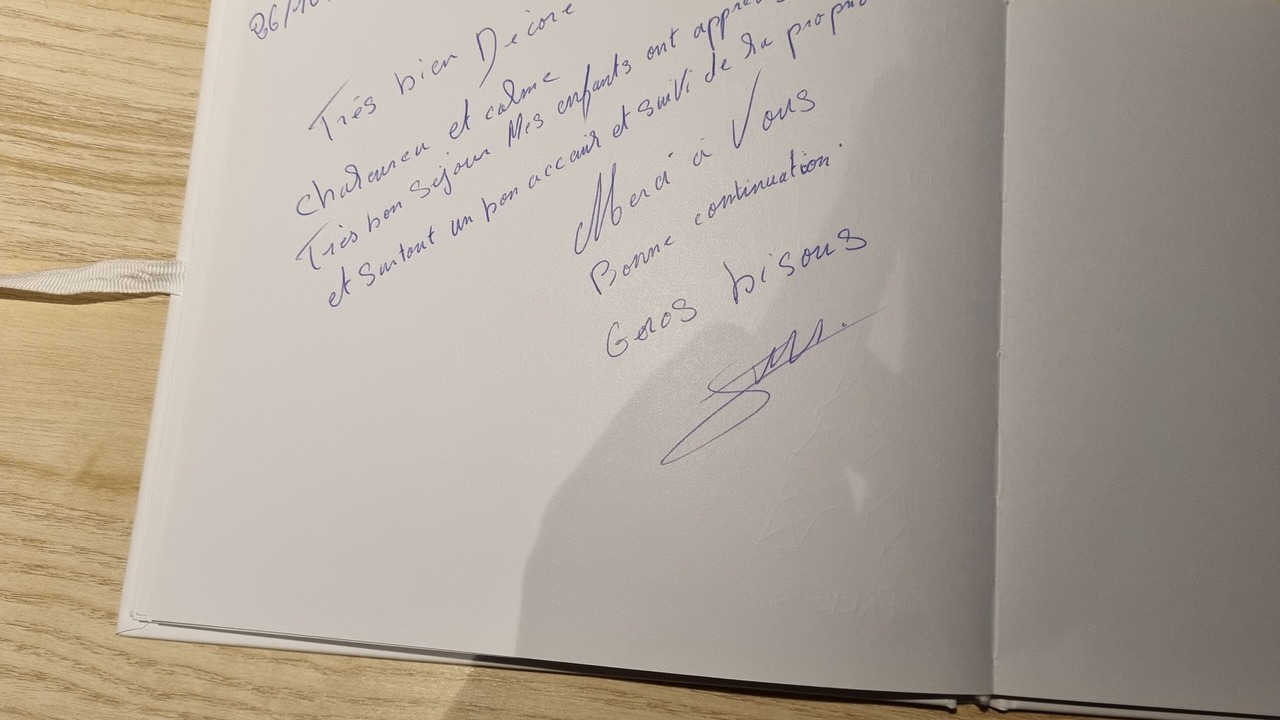 26/10
Très bien Décoré
chaleureu et calme
Très bon séjour Mes enfants ont
et surtout un bon accair et suivi de la
Merci à Vous
Bonne continuation.
Gros bisous